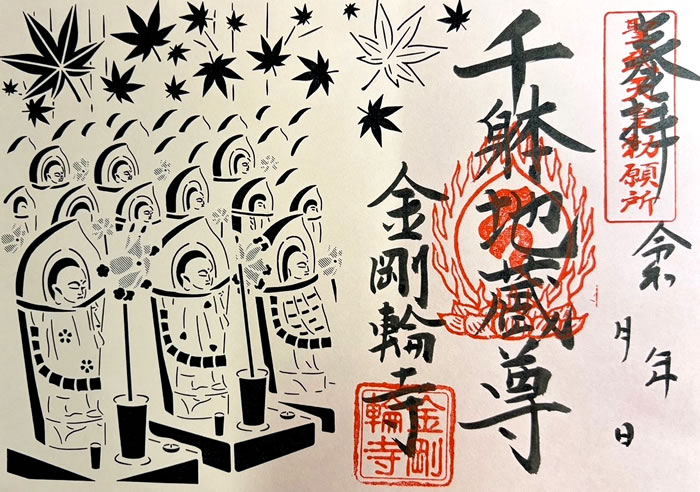 奉拝
聖武天皇勅願所
令和 年 月 日
千躰地蔵尊
金剛輪寺
金剛輪寺